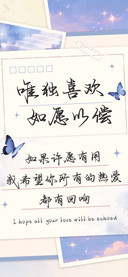 唯独喜欢
如愿以偿
如果许愿有用
我希望你所有的热爱
都有回响
I hope all your love will be echoed